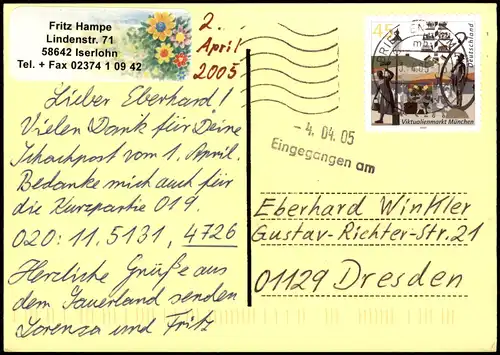 Fritz Hampe
Lindenstr. 71
58642 Iserlohn
Tel. + Fax 02374 1 09 42
2.
April
2005
Lieber Eberhard!
Vielen Dank für Deine
Schachpost vom 1. April.
Bedanke mich auch für
die Kurzpartie 019.
020: 11.5131, 4726
Herzliche Grüße aus
dem Sauerland senden
Lorenza und Fritz
45
Deutschland
Viktualienmarkt München
- 4. 04. 05
Eingegangen am
Eberhard Winkler
Gustav-Richter-Str. 21
01129 Dresden